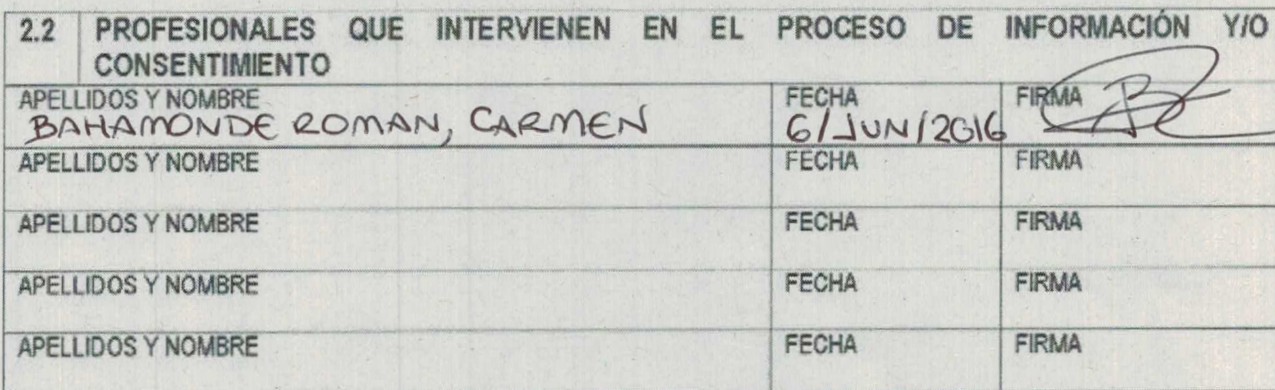 2.2 PROFESIONALES QUE INTERVIENEN EN EL PROCESO DE INFORMACIÓN Y/O
CONSENTIMIENTO
APELLIDOS Y NOMBRE FECHA FIRMA
BAHAMONDE ROMAN, CARMEN 6/JUN/2016
APELLIDOS Y NOMBRE FECHA FIRMA
APELLIDOS Y NOMBRE FECHA FIRMA
APELLIDOS Y NOMBRE FECHA FIRMA
APELLIDOS Y NOMBRE FECHA FIRMA